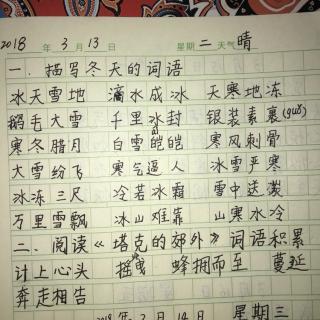 2018年3月13日 星期二 天气晴
一.描写冬天的词语
冰天雪地 滴水成冰 天寒地冻
鹅毛大雪 千里冰封 银装素裹(guǒ)
寒冬腊月 白雪皑皑 寒风刺骨
大雪纷飞 寒气逼人 冰雪严寒
冰冻三尺 冷若冰霜 雪中送炭
万里雪飘 冰山难靠 山寒水冷
二、阅读《塔克的郊外》词语积累
计上心头 摇曳 蜂拥而至 蔓延
奔走相告
2018年3月14日 星期三